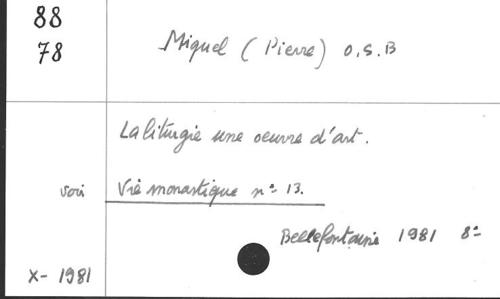 88
78
Miquel (Pierre) O.S.B
La liturgie une oeuvre d'art.
voir Vie monastique n° 13.
Bellefontaine 1981 8°
X- 1981